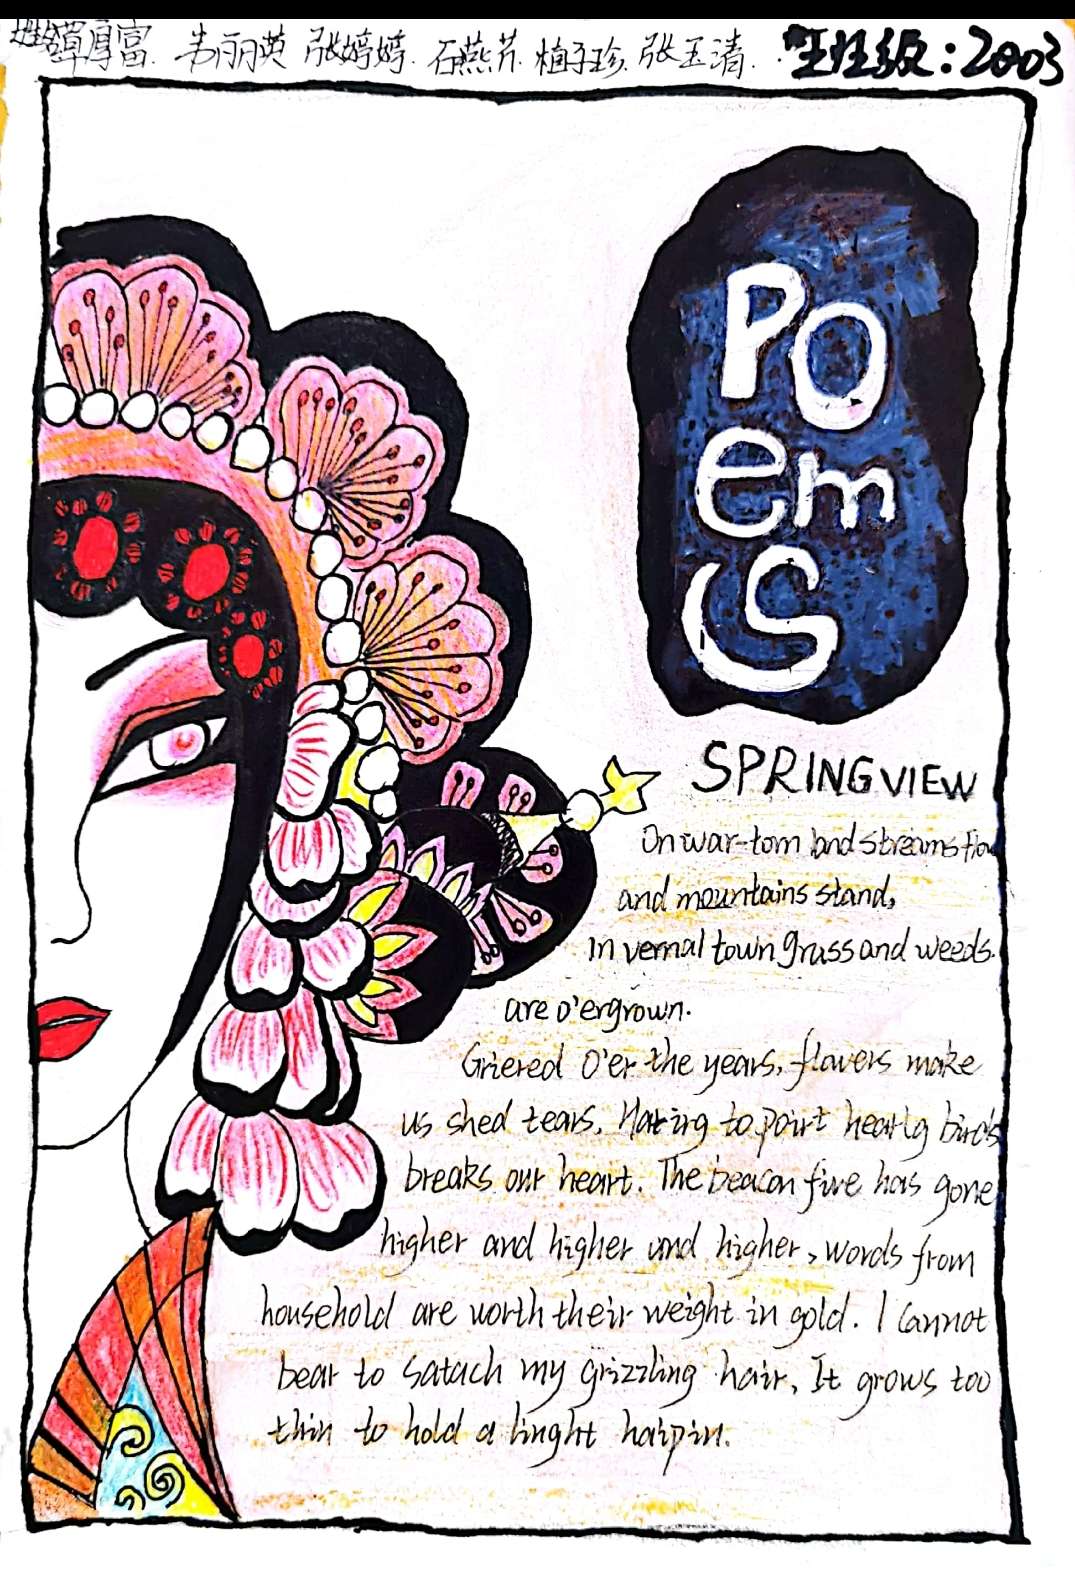 姓名:覃厚富 韦丽英 张婷婷 石燕芹 植子珍 张玉清
班级:2003
Poems
SPRING VIEW
On war-torn land streams flow
and mountains stand,
In vernal town grass and weeds
are o'ergrown.
Griered O'er the years, flowers make
us shed tears. Hating to point hearlg birds
breaks our heart. The beacon fire has gone
higher and higher and higher, words from
household are worth their weight in gold. I cannot
bear to satach my grizzling hair, It grows too
thin to hold a linght hairpin.